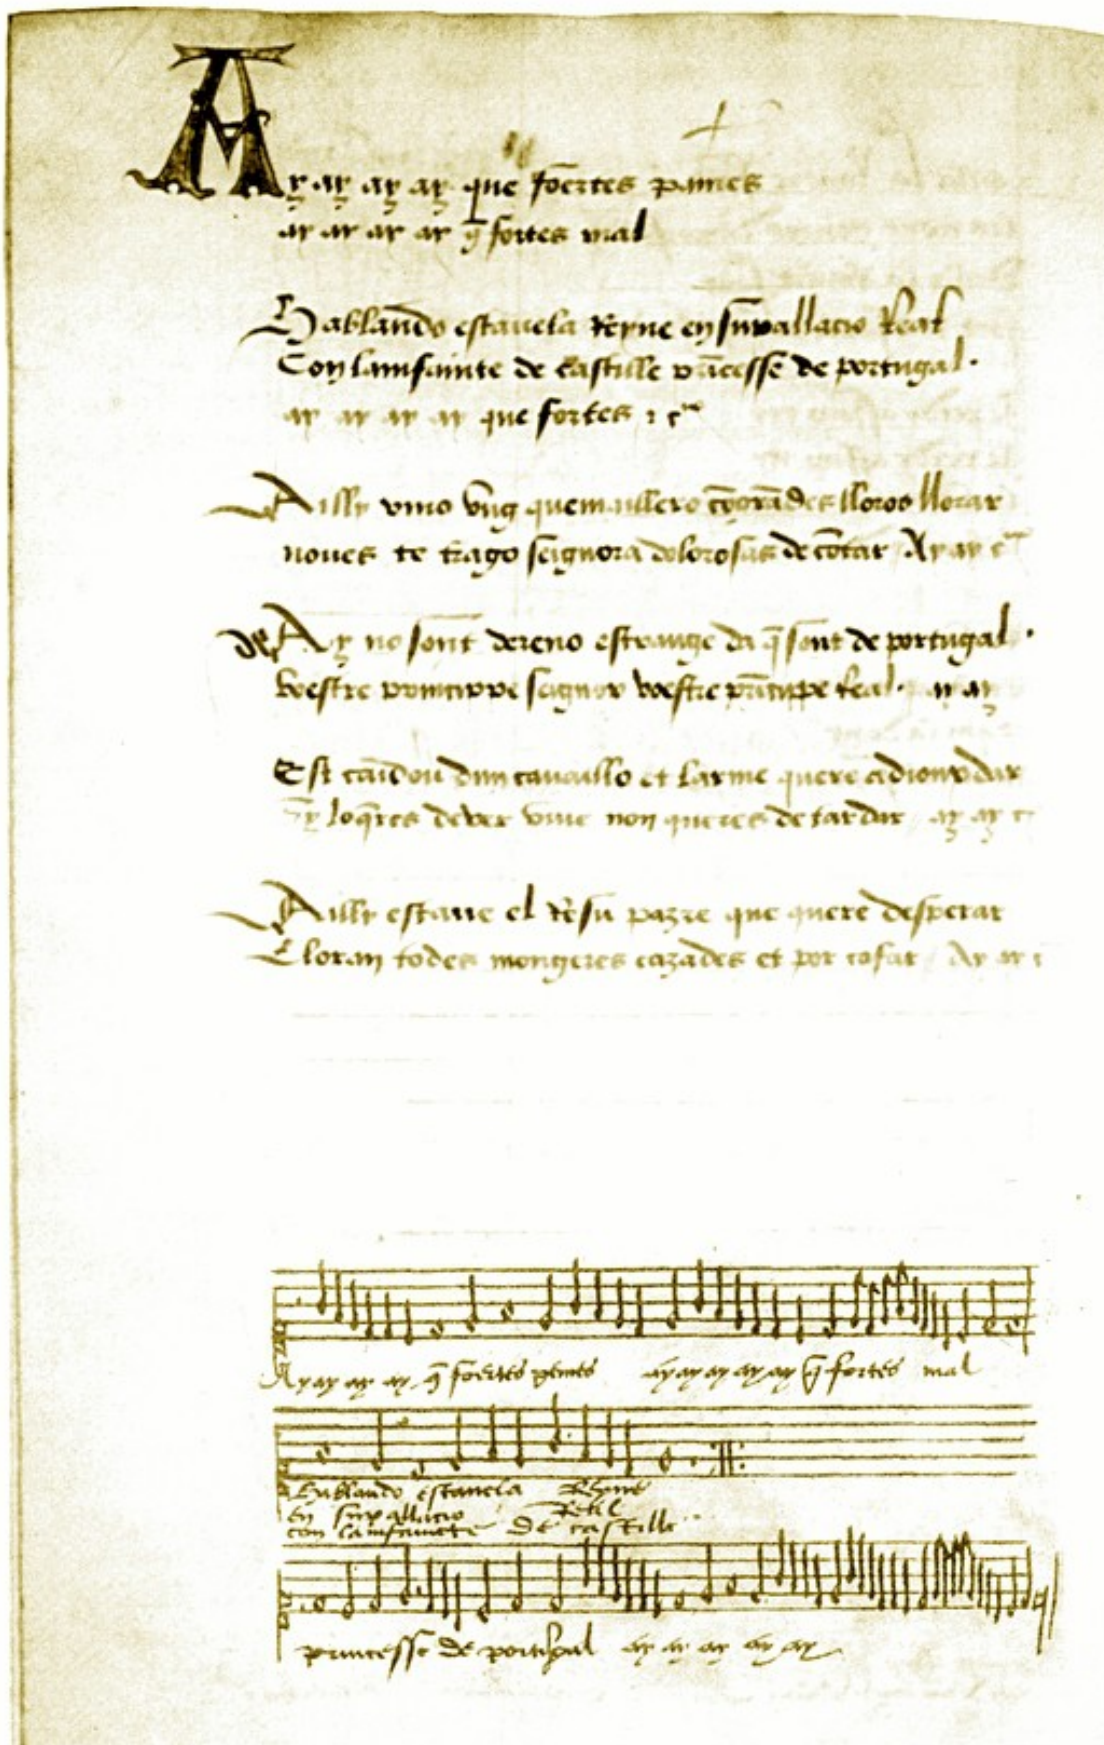 Ay ay ay ay que foertes pames
ay ay ay ay q̃ fortes mal
Hablando estauela Reyne en sun pallacio Real
Con lamfainte de Castille prĩcesse de portugal.
ay ay ay ay que fortes
Ailly vino vng quemallero lloros llorar
noues te trago seignora dolorosas de cõtar Ay ay
Ay no sont dereno estrange da q̃ sont de portugal.
voestre princippe seignor voestre prĩcippe Real. ay ay
Est dun cauaillo et larme quere
loq̃res dever viue non queres de tardar ay ay
Ailly estaue el Re su pazre que quere desperar
Eloran todes mongeres cazades et por cosar Ay ay
Ay ay ay ay q̃ foertes pames ay ay ay ay ay q̃ fortes mal
Hablando estauela Reyne
En sun pallacio Real
con lamfainte de castille
princesse de portugal ay ay ay ay ay